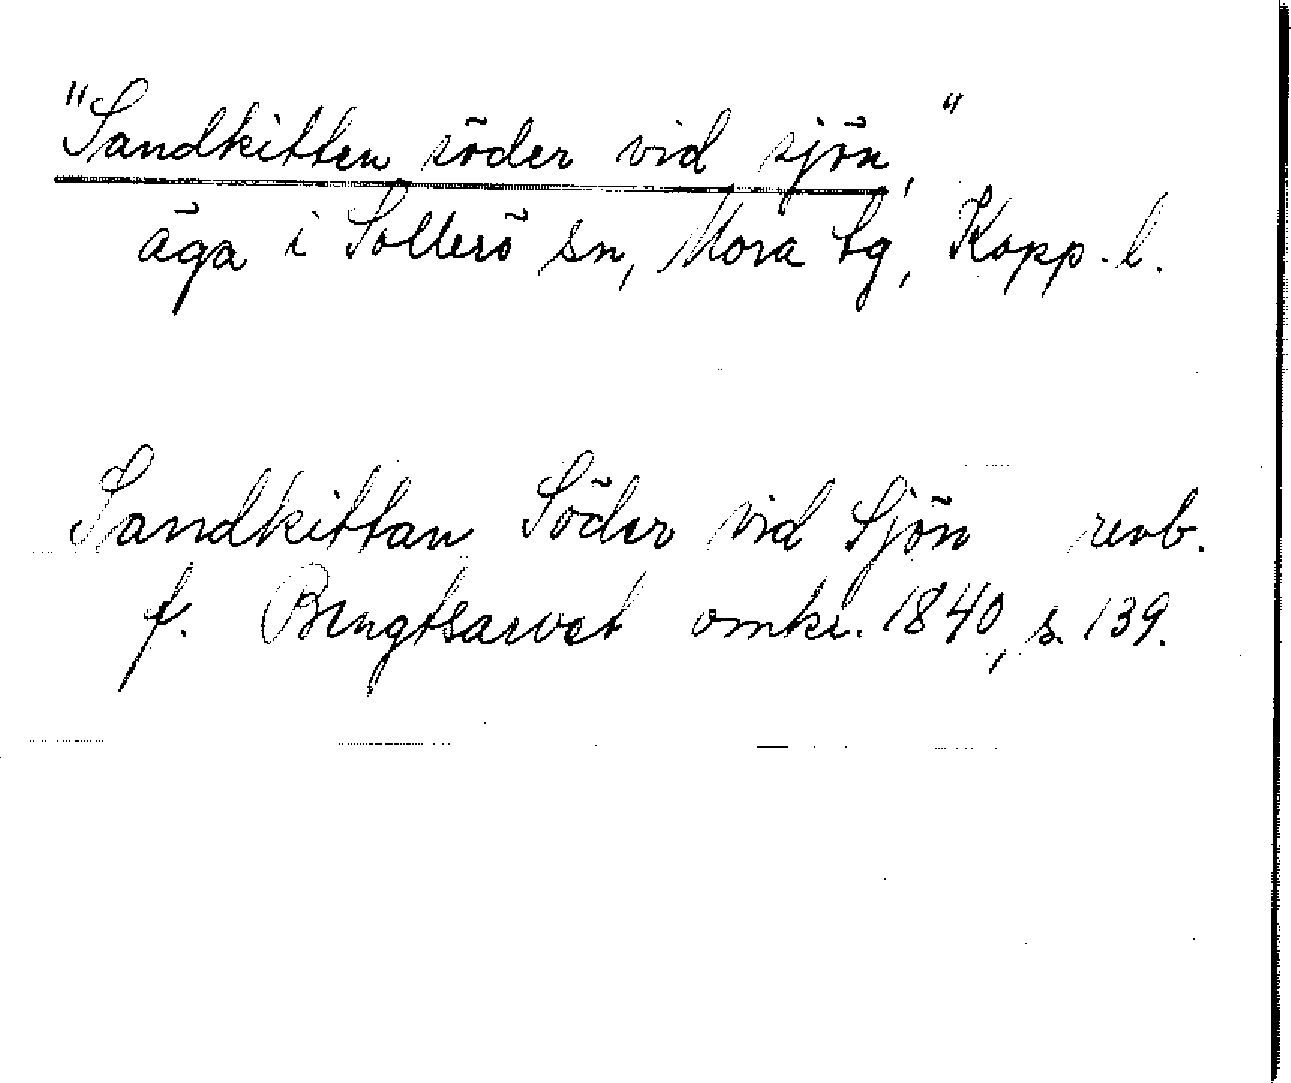 "Sandkitten söder vid sjön,"
äga i Sollerö sn, Mora tg, Kopp. l.
Sandkittan Söder vid Sjön revb.
f. Bengtsarvet omkr. 1840, s. 139.